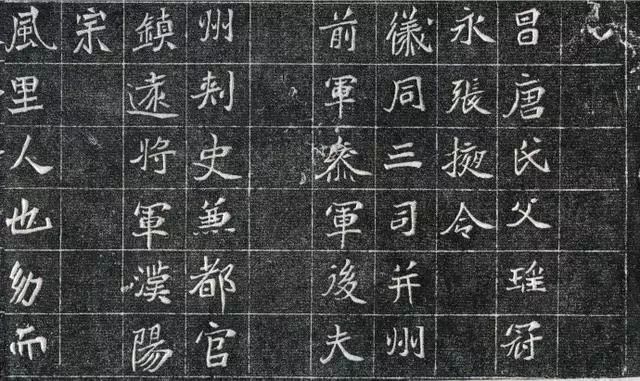 昌唐氏父瑶冠
永張掖令
儀同三司并州
前軍叅軍後夫
州刺史兼都官
鎮遠将軍漢陽
宗
風里人也幼而